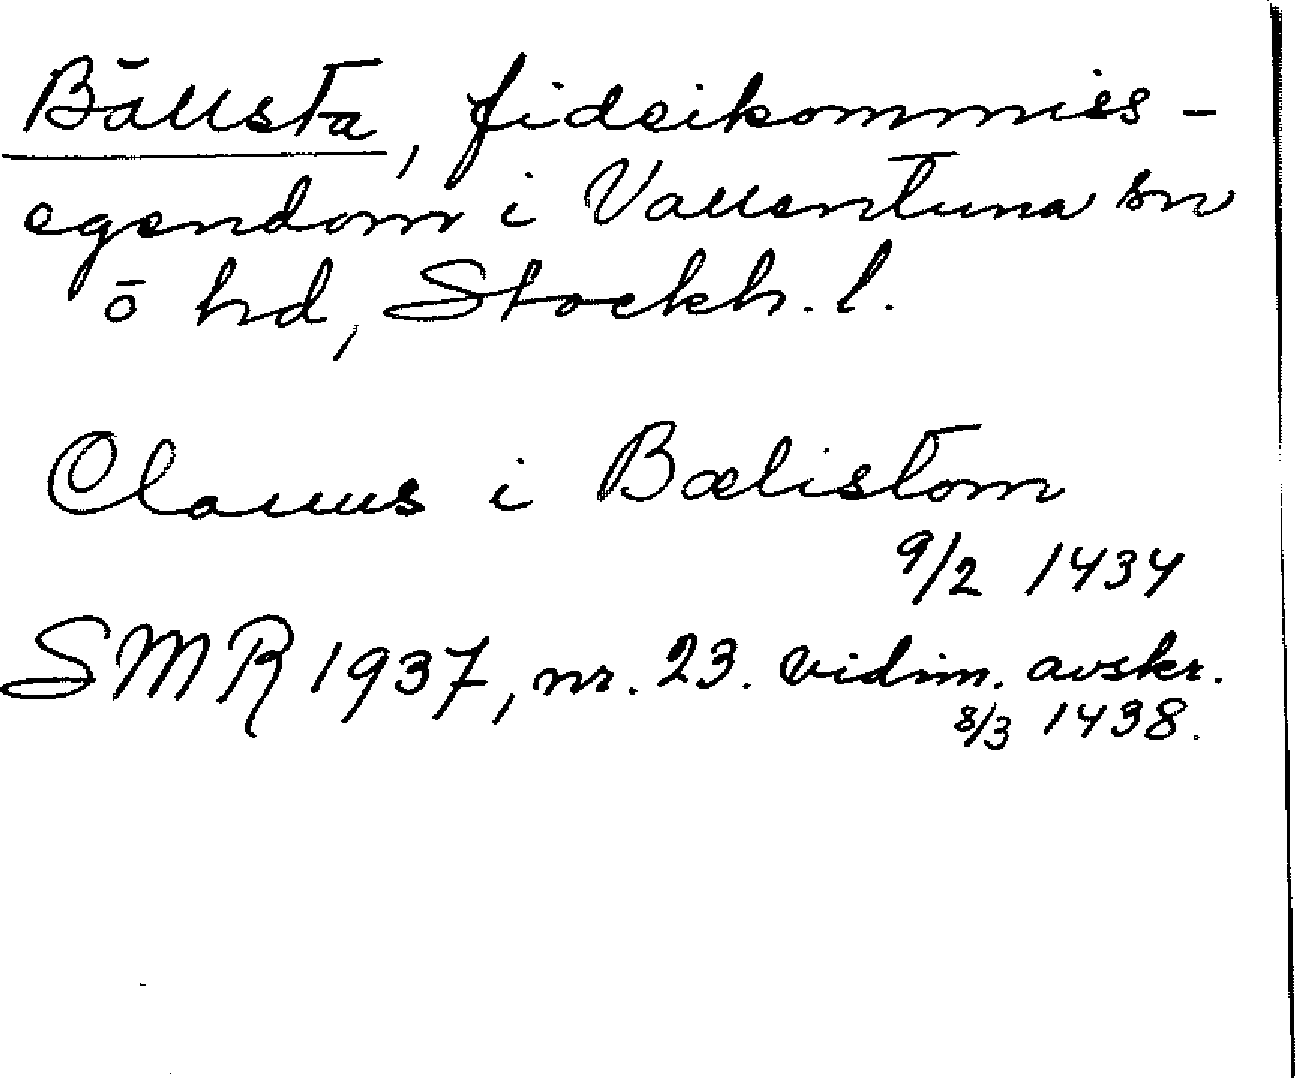 Bällsta, fideikommiss-
egendom i Vallentuna sn
ö hd, Stockh. l.
Clauus i Bælistom
9/2 1434
SMR 1937, nr. 23. vidim. avskr.
8/3 1438.